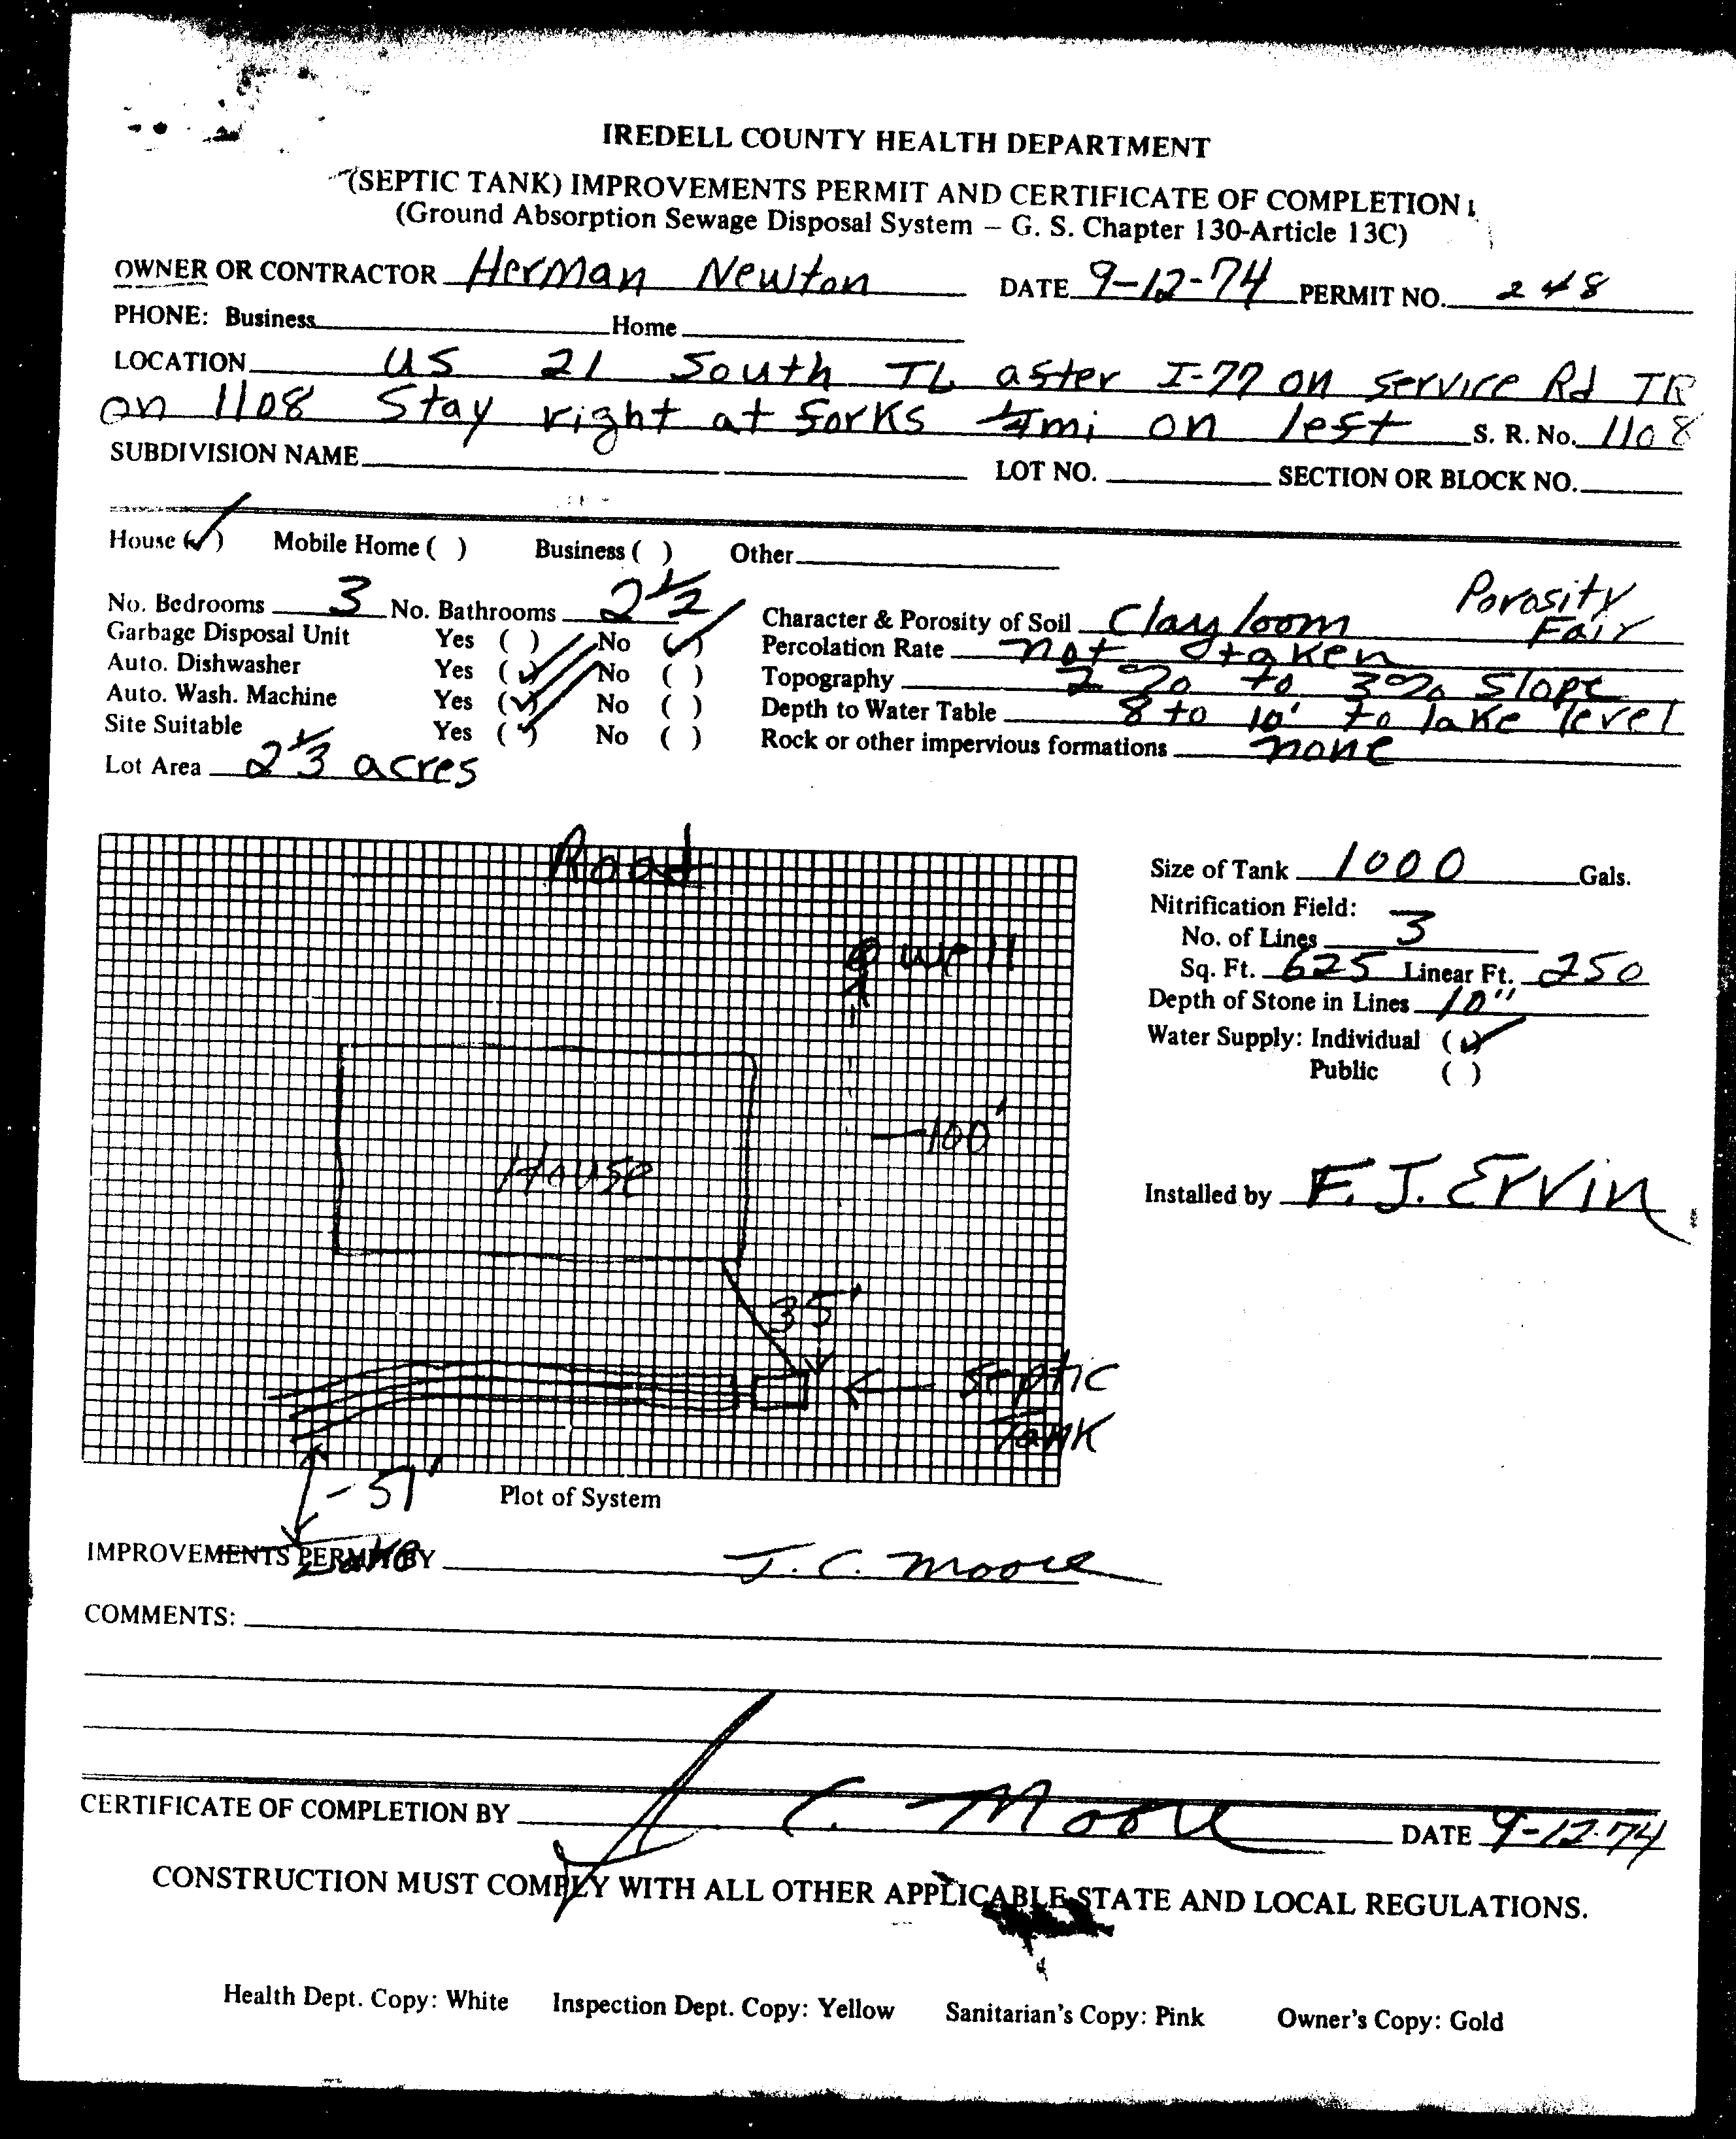 IREDELL COUNTY HEALTH DEPARTMENT
(SEPTIC TANK) IMPROVEMENTS PERMIT AND CERTIFICATE OF COMPLETION
(Ground Absorption Sewage Disposal System – G. S. Chapter 130-Article 13C)
OWNER OR CONTRACTOR Herman Newton DATE 9-12-74 PERMIT NO. 248
PHONE: Business Home
LOCATION US 21 South TL after I-77 on service Rd TR
on 1108 Stay right at forks ¼mi on left S. R. No. 1108
SUBDIVISION NAME LOT NO. SECTION OR BLOCK NO.
House (✓) Mobile Home ( ) Business ( ) Other
No. Bedrooms 3 No. Bathrooms 2½
Garbage Disposal Unit Yes ( ) No (✓)
Auto. Dishwasher Yes (✓) No ( )
Auto. Wash. Machine Yes (✓) No ( )
Site Suitable Yes (✓) No ( )
Lot Area 2⅓ acres
Character & Porosity of Soil Clay loom Porosity Fair
Percolation Rate not taken
Topography 2% to 3% Slope
Depth to Water Table 8 to 10' to lake level
Rock or other impervious formations none
Road
well
House
100'
35'
Septic
Tank
51'
Lake
Plot of System
Size of Tank 1000 Gals.
Nitrification Field:
No. of Lines 3
Sq. Ft. 625 Linear Ft. 250
Depth of Stone in Lines 10"
Water Supply: Individual (✓)
Public ( )
Installed by F. J. Ervin
IMPROVEMENTS PERMIT BY J. C. Moore
COMMENTS:
CERTIFICATE OF COMPLETION BY J C. Moore DATE 9-12-74
CONSTRUCTION MUST COMPLY WITH ALL OTHER APPLICABLE STATE AND LOCAL REGULATIONS.
Health Dept. Copy: White Inspection Dept. Copy: Yellow Sanitarian's Copy: Pink Owner's Copy: Gold